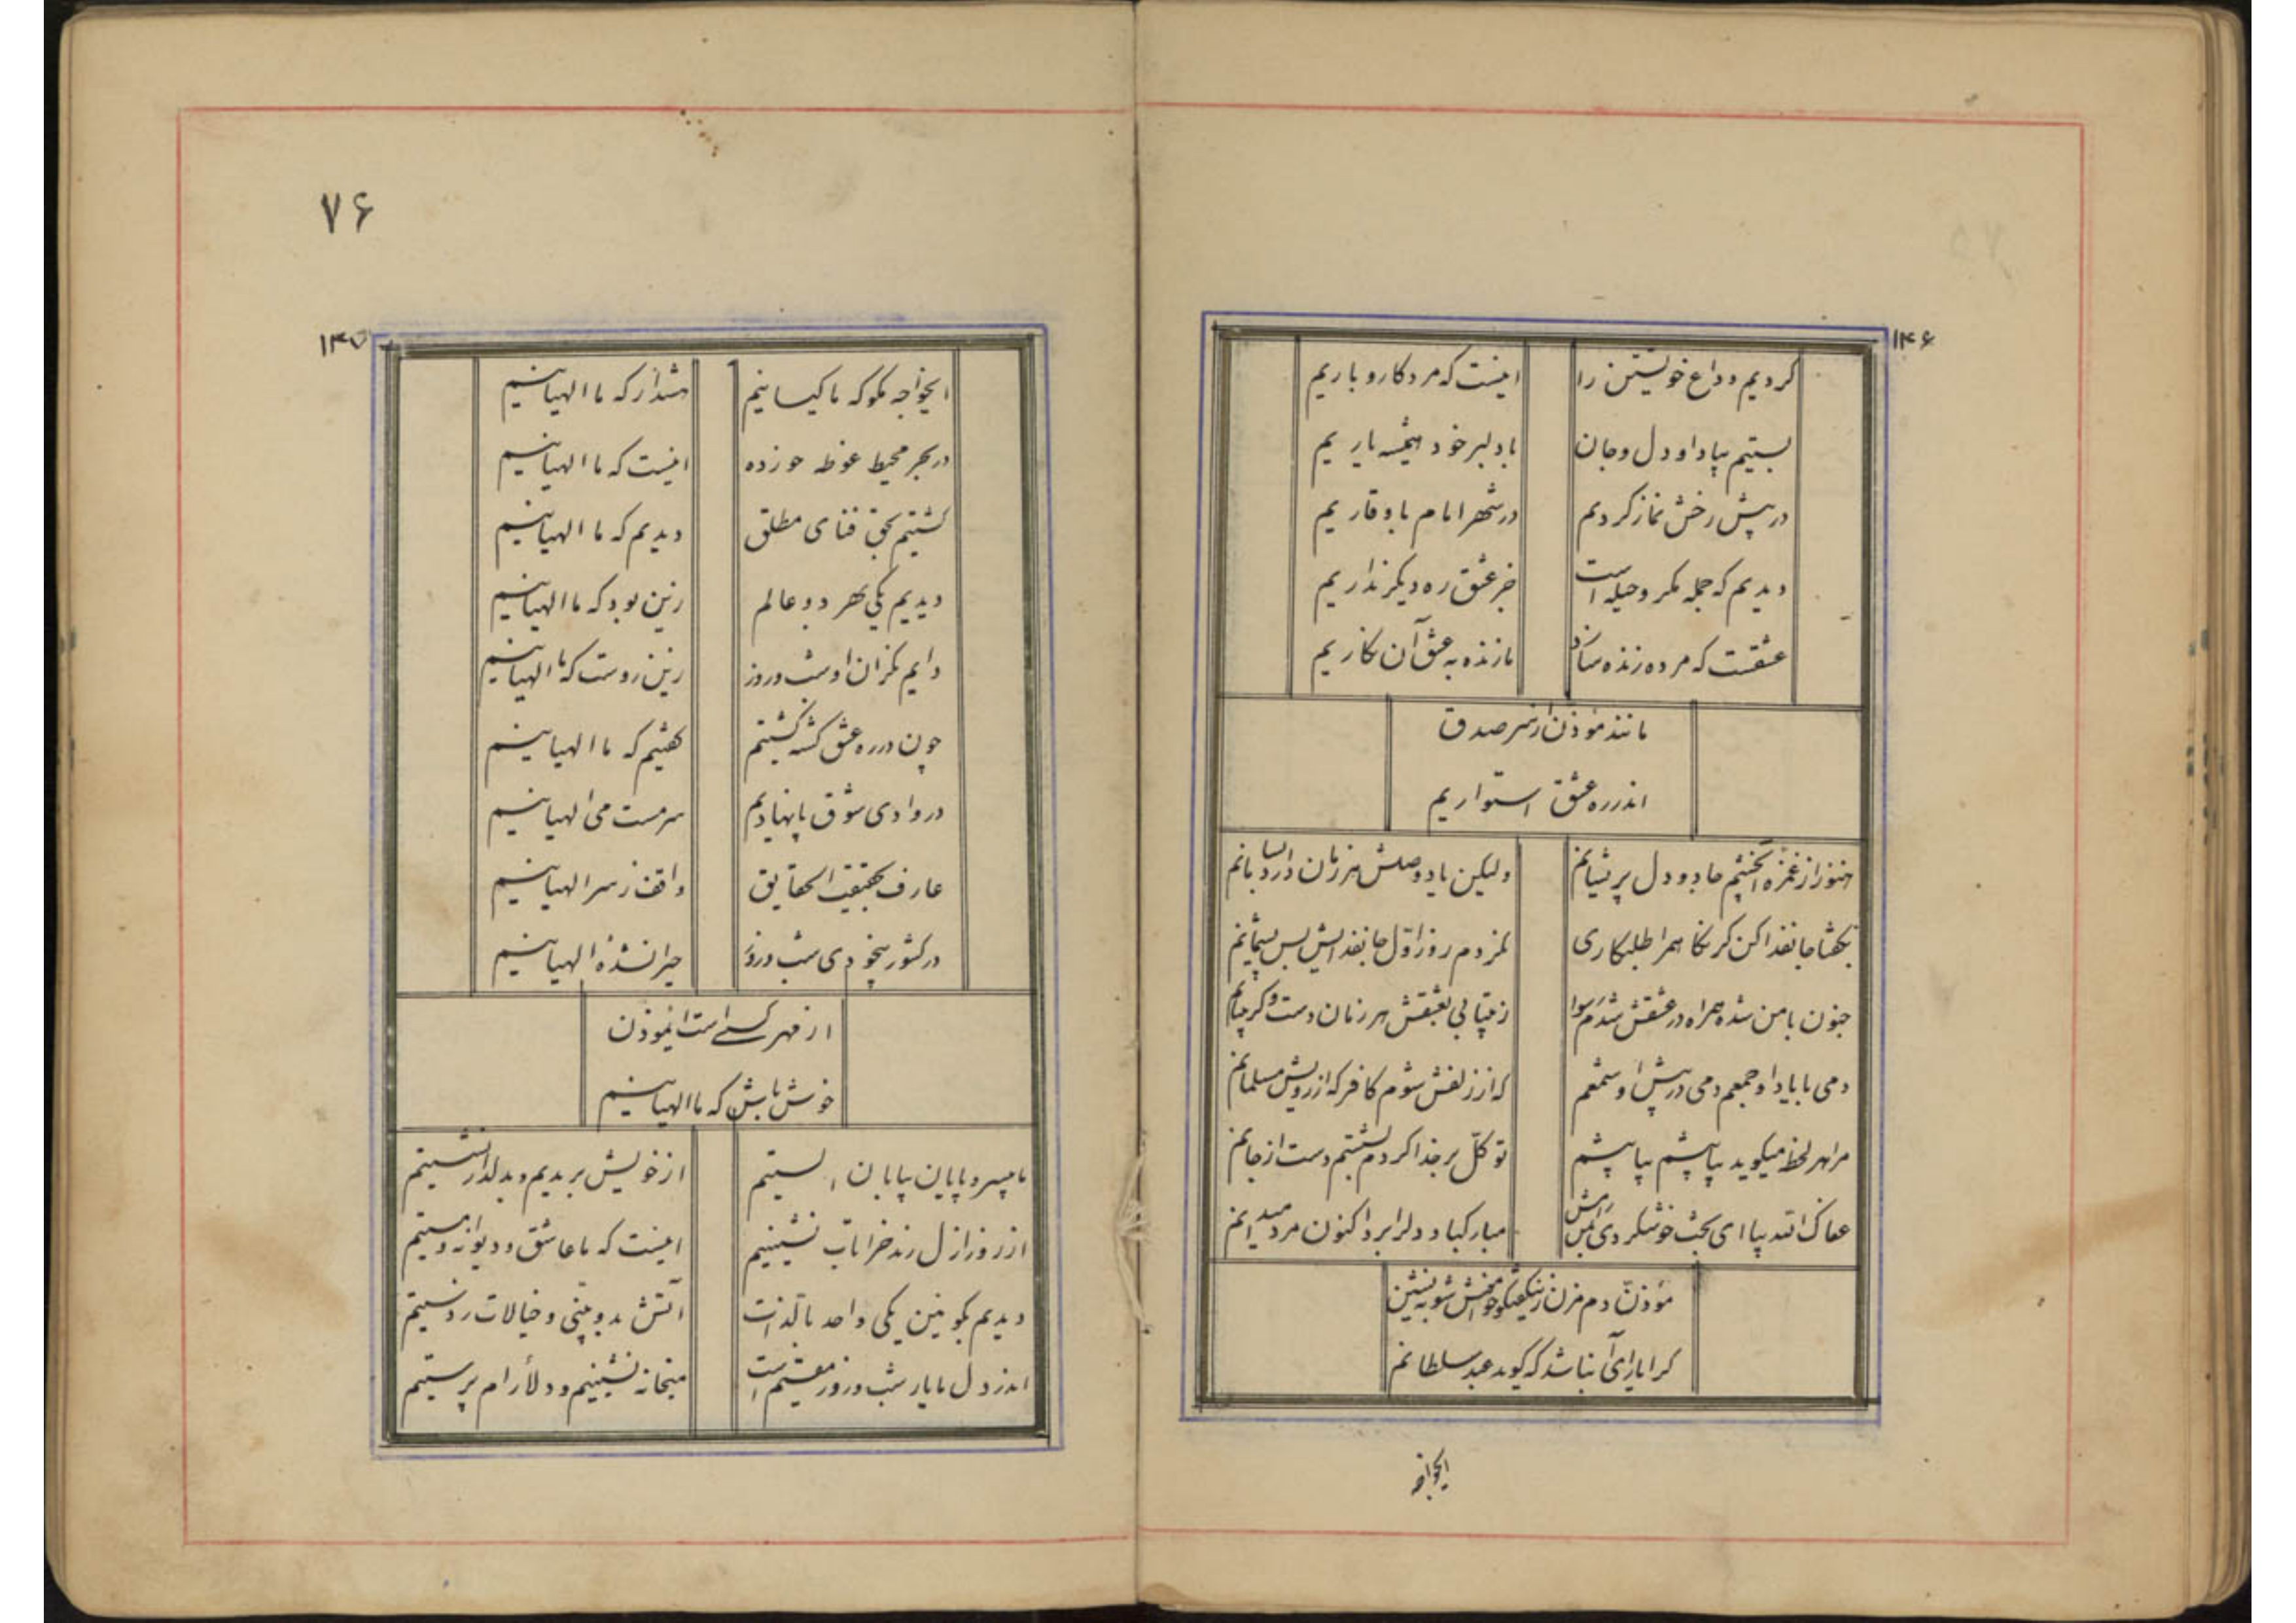 ۱۴۶
کردیم وداع خویشتن را اینست که مرد کار و باریم
بستیم بیاد او دل و جان با دلبر خود همیشه یاریم
در پیش رخش نماز کردیم در شهر امام با وقاریم
دیدیم که جمله مکر و حیله است جز عشق ره دیگر نداریم
عشقست که مرده زنده سازد ما زنده به عشق آن نکاریم
مانند مؤذن از سر صدق
اندر ره عشق استواریم
هنوز از غمزه چشم جادو دل پریشانم ولیکن یاد وصلش هر زمان دارد
بکفتا جانفدا کن کر نکاهمرا طلبکاری روز اول جانفدایش پس پشیمانم
جنون با من شده همراه در عشقش شدم رسوا ز بیتابی بعشقش هر زمان دست و کریبانم
دمی با یاد او جمعم دمی در پیش او شمعم که از زلفش شوم کافر که از رویش مسلمانم
مرا هر لحظه میکوید بیا پیشم بیا پیشم توکل بر خدا کردم بشستم دست از جانم
عفاک الله بیا ای بخت خوش کردی مبارکباد دلرا بر در اکنون مرد میدانم
مؤذن دم مزن بنشین
کرا یارای آن باشد که کوید عبد سلطانم
ایخواجه
۷۶
۱۴۷
ایخواجه مکو که ما کیسانیم هشدار که ما الهیانیم
در بحر محیط غوطه خورده اینست که ما الهیانیم
کشتیم بحق فنای مطلق دیدیم که ما الهیانیم
دیدیم یکی بهر دو عالم زین بود که ما الهیانیم
دایم نکران او شب و روز زین روست که ما الهیانیم
چون در ره عشق کشته کشتیم کفتیم که ما الهیانیم
در وادی شوق پا نهادیم سرمست می الهیانیم
عارف بحقیقت الحقایق واقف ز سر الهیانیم
در کشور بیخودی شب و روز حیران شده الهیانیم
از قهر کسی است ایموذن
خوش باش که ما الهیانیم
ما بیسر و پایان بیابان الستیم از خویش بریدیم و بدلدار نشستیم
از روز ازل رند خرابات نشینیم اینست که ما عاشق و دیوانه و مستیم
دیدیم بکونین یکی واحد بالذات آتش بدوبینی و خیالات زدستیم
اندر دل ما یار شب و روز مقیم است میخانه نشینیم و دلارام پرستیم